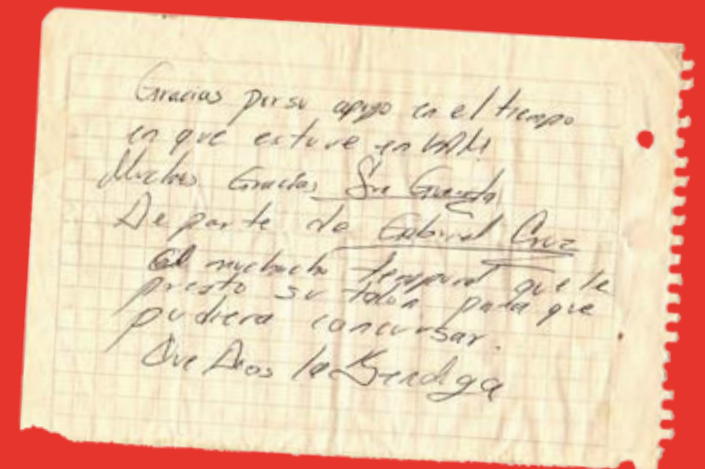 Gracias por su apoyo en el tiempo
en que estuve en
Muchas Gracias Sra
De parte de Gabriel Cruz
El muchacho temporal que le
presto su talon para que
pudiera concursar.
Que Dios la Bendiga